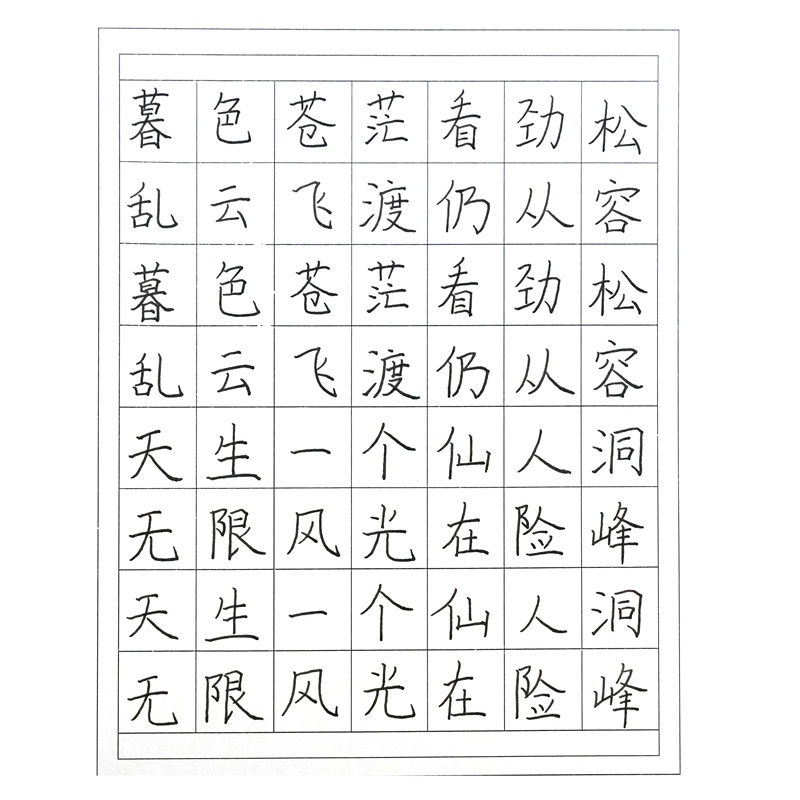 暮色苍茫看劲松
乱云飞渡仍从容
暮色苍茫看劲松
乱云飞渡仍从容
天生一个仙人洞
无限风光在险峰
天生一个仙人洞
无限风光在险峰